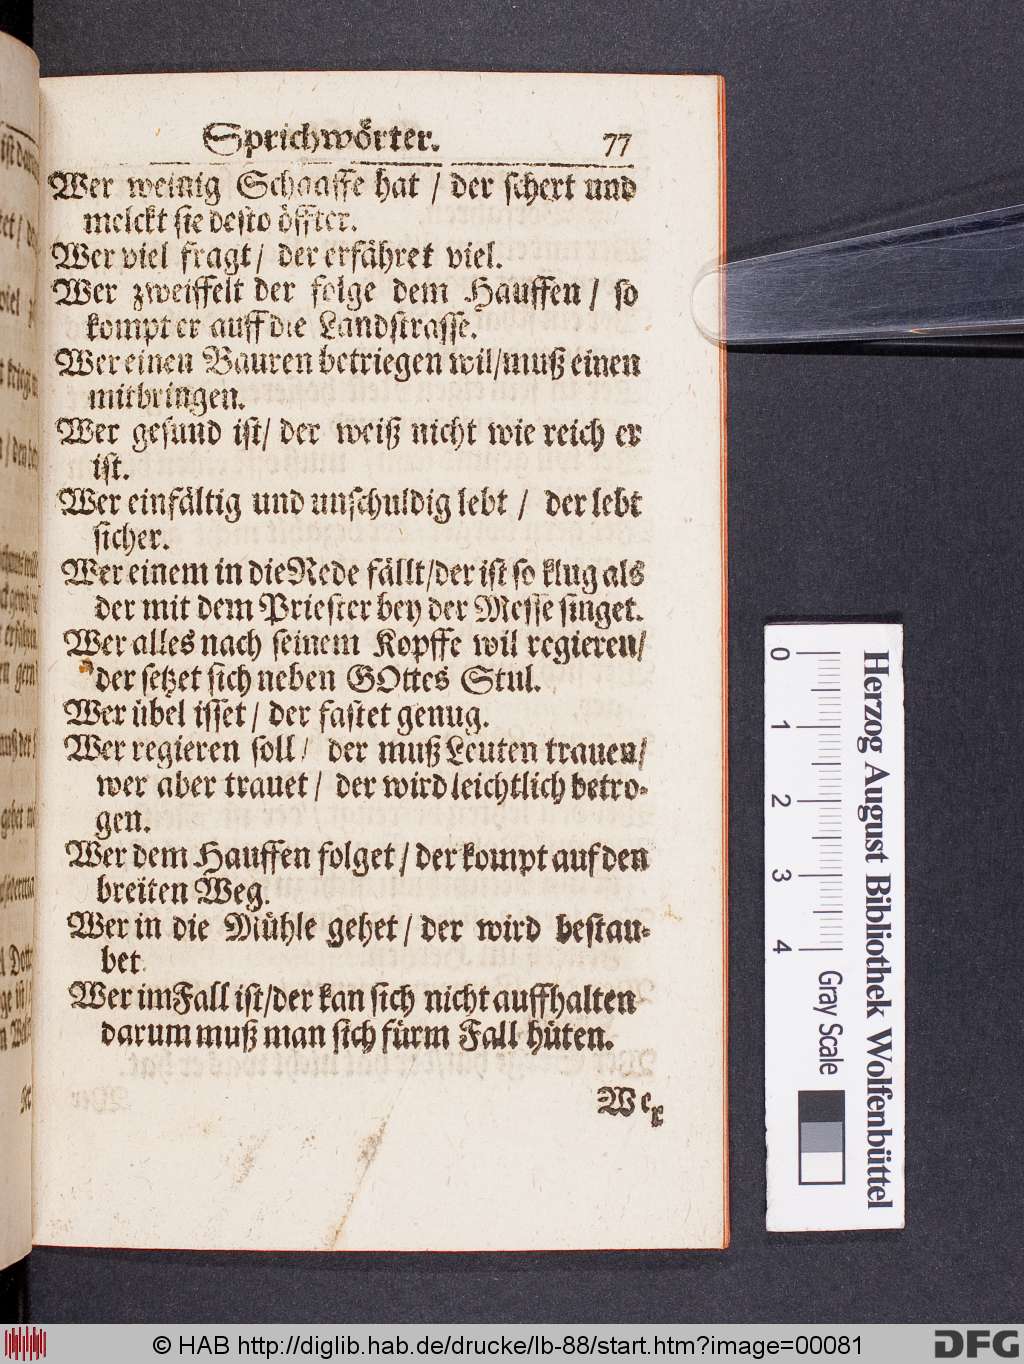 Sprichwörter. 77
Wer weinig Schaaffe hat / der schert und
melckt sie desto öffter.
Wer viel fragt / der erfähret viel.
Wer zweiffelt der folge dem Hauffen / so
kompt er auff die Landstrasse.
Wer einen Bauren betriegen wil/muß einen
mitbringen.
Wer gesund ist/ der weiß nicht wie reich er
ist.
Wer einfältig und unschuldig lebt / der lebt
sicher.
Wer einem in die Rede fällt/der ist so klug als
der mit dem Priester bey der Messe singet.
Wer alles nach seinem Kopffe wil regieren/
der setzet sich neben GOttes Stul.
Wer übel isset / der fastet genug.
Wer regieren soll / der muß Leuten trauen/
wer aber trauet / der wird leichtlich betro-
gen.
Wer dem Hauffen folget / der kompt auf den
breiten Weg.
Wer in die Mühle gehet / der wird bestau-
bet.
Wer im Fall ist/der kan sich nicht auffhalten
darum muß man sich fürm Fall hüten.
Wer
Herzog August Bibliothek Wolfenbüttel
0 1 2 3 4 Gray Scale
© HAB http://diglib.hab.de/drucke/lb-88/start.htm?image=00081
DFG